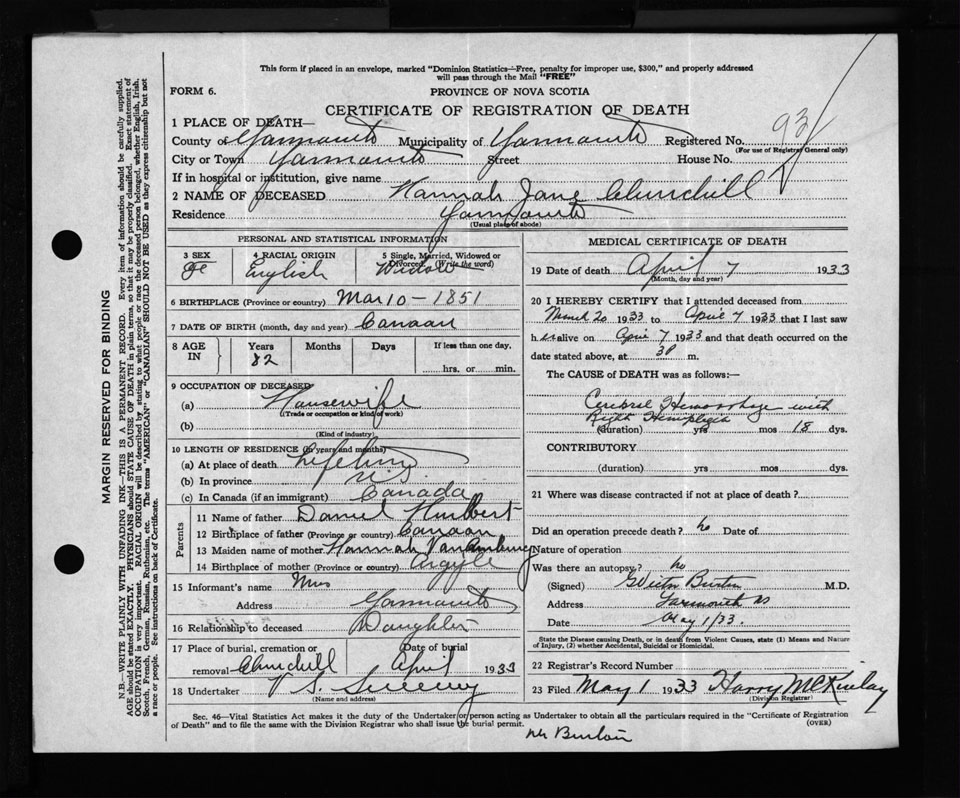 This form if placed in an envelope, marked "Dominion Statistics—Free, penalty for improper use, $300," and properly addressed
will pass through the Mail "FREE"
FORM 6.
PROVINCE OF NOVA SCOTIA
CERTIFICATE OF REGISTRATION OF DEATH
1 PLACE OF DEATH—
County of Yarmouth Municipality of Yarmouth Registered No. 93
(For use of Registrar General only)
City or Town Yarmouth Street House No.
If in hospital or institution, give name
2 NAME OF DECEASED Hannah Jane Churchill
Residence Yarmouth
(Usual place of abode)
PERSONAL AND STATISTICAL INFORMATION
3 SEX 4 RACIAL ORIGIN 5 Single, Married, Widowed or
Divorced. (Write the word)
Fe English Widow
6 BIRTHPLACE (Province or country) Mar 10 - 1851
7 DATE OF BIRTH (month, day and year) Canaan
8 AGE IN Years Months Days If less than one day.
82 hrs. or min.
9 OCCUPATION OF DECEASED
(a) Housewife
(Trade or occupation or kind of work)
(b)
(Kind of industry)
10 LENGTH OF RESIDENCE (in years and months)
(a) At place of death Lifetime
(b) In province N.S.
(c) In Canada (if an immigrant) Canada
Parents
11 Name of father Daniel Hurlbert
12 Birthplace of father (Province or country) Canaan
13 Maiden name of mother Hannah VanAmburg
14 Birthplace of mother (Province or country) Argyle
15 Informant's name Mrs
Address Yarmouth
16 Relationship to deceased Daughter
17 Place of burial, cremation or Date of burial
removal Churchill April 1933
18 Undertaker V. S. Sweeny
(Name and address)
MEDICAL CERTIFICATE OF DEATH
19 Date of death April 7 1933
(Month, day and year)
20 I HEREBY CERTIFY that I attended deceased from
March 20 1933 to April 7 1933 that I last saw
h er alive on April 7 1933 and that death occurred on the
date stated above, at 3P m.
The CAUSE of DEATH was as follows:—
Cerebral Hemorrhage with
Right Hemiplegia
(duration) yrs mos 18 dys.
CONTRIBUTORY
(duration) yrs mos dys.
21 Where was disease contracted if not at place of death?
Did an operation precede death? no Date of
Nature of operation
Was there an autopsy? no
(Signed) Burton M.D.
Address Yarmouth NS
Date May 1/33.
State the Disease causing Death, or in death from Violent Causes, state (1) Means and Nature
of Injury, (2) whether Accidental, Suicidal or Homicidal.
22 Registrar's Record Number
23 Filed May 1 1933 Harry McKinlay
(Division Registrar)
Sec. 46—Vital Statistics Act makes it the duty of the Undertaker or person acting as Undertaker to obtain all the particulars required in the "Certificate of Registration
of Death" and to file the same with the Division Registrar who shall issue the burial permit.
(OVER)
Burton
MARGIN RESERVED FOR BINDING
N.B.—WRITE PLAINLY WITH UNFADING INK—THIS IS A PERMANENT RECORD. Every item of information should be carefully supplied.
AGE should be stated EXACTLY. PHYSICIANS should STATE CAUSE OF DEATH in plain terms, so that it may be properly classified. Exact statement of
OCCUPATION is very important. RACIAL ORIGIN will be described by stating to what people or race the deceased person belonged, whether English, Irish,
Scotch, French, German, Russian, Ruthenian, etc. The terms "AMERICAN" or "CANADIAN" SHOULD NOT BE USED as they express citizenship but not
a race or people. See instructions on back of Certificate.